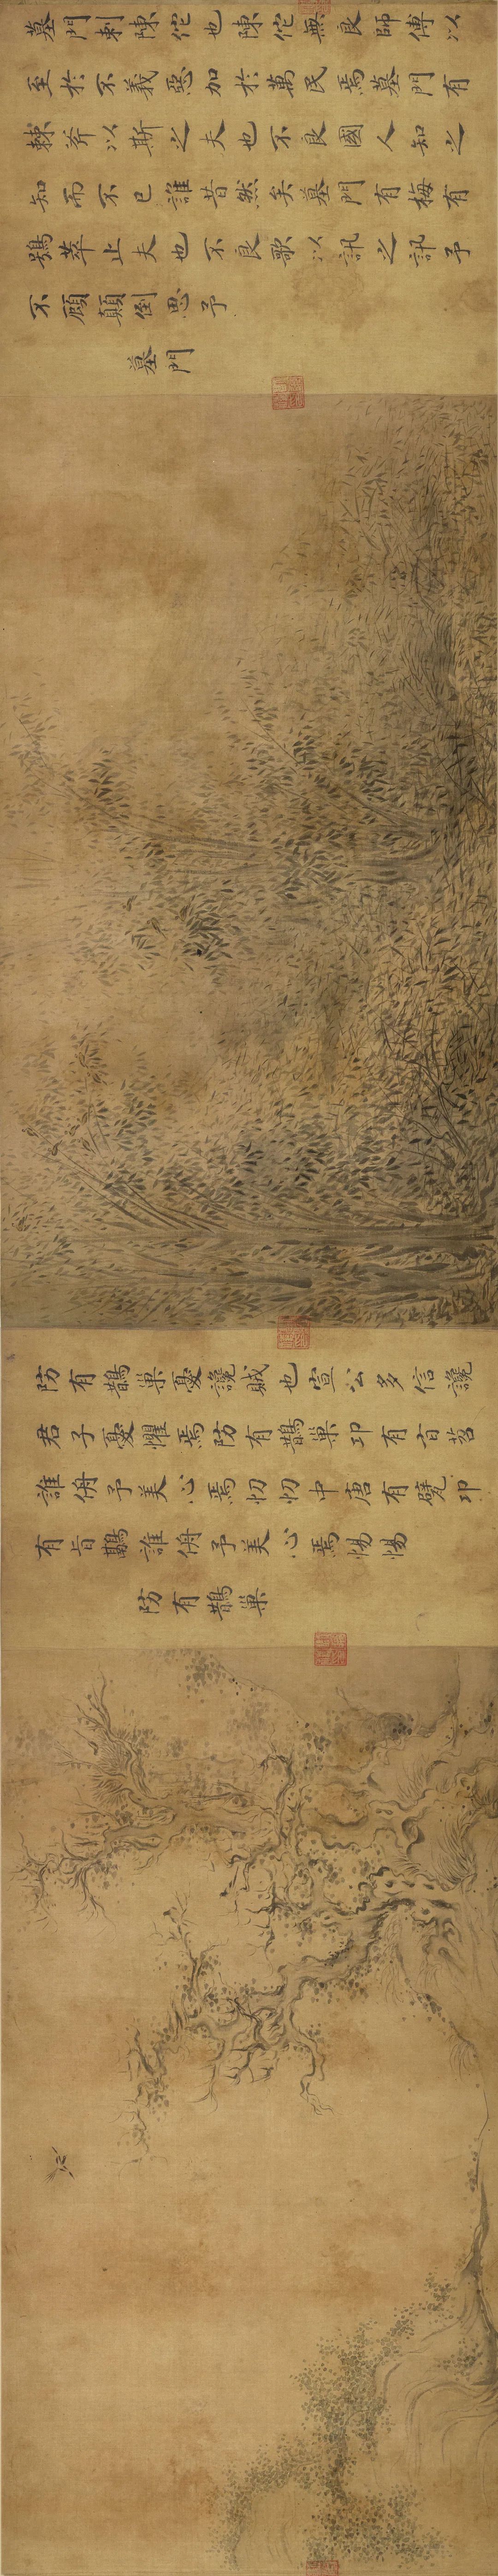 墓門刺陳佗也陳佗無良師傅以
至於不義惡加於萬民焉墓門有
棘斧以斯之夫也不良國人知之
知而不已誰昔然矣墓門有梅有
鴞萃止夫也不良歌以訊之訊予
不顧顛倒思予
墓門
防有鵲巢憂讒賊也宣公多信讒
君子憂懼焉防有鵲巢卭有旨苕
誰侜予美心焉忉忉中唐有甓卭
有旨鷊誰侜予美心焉惕惕
防有鵲巢